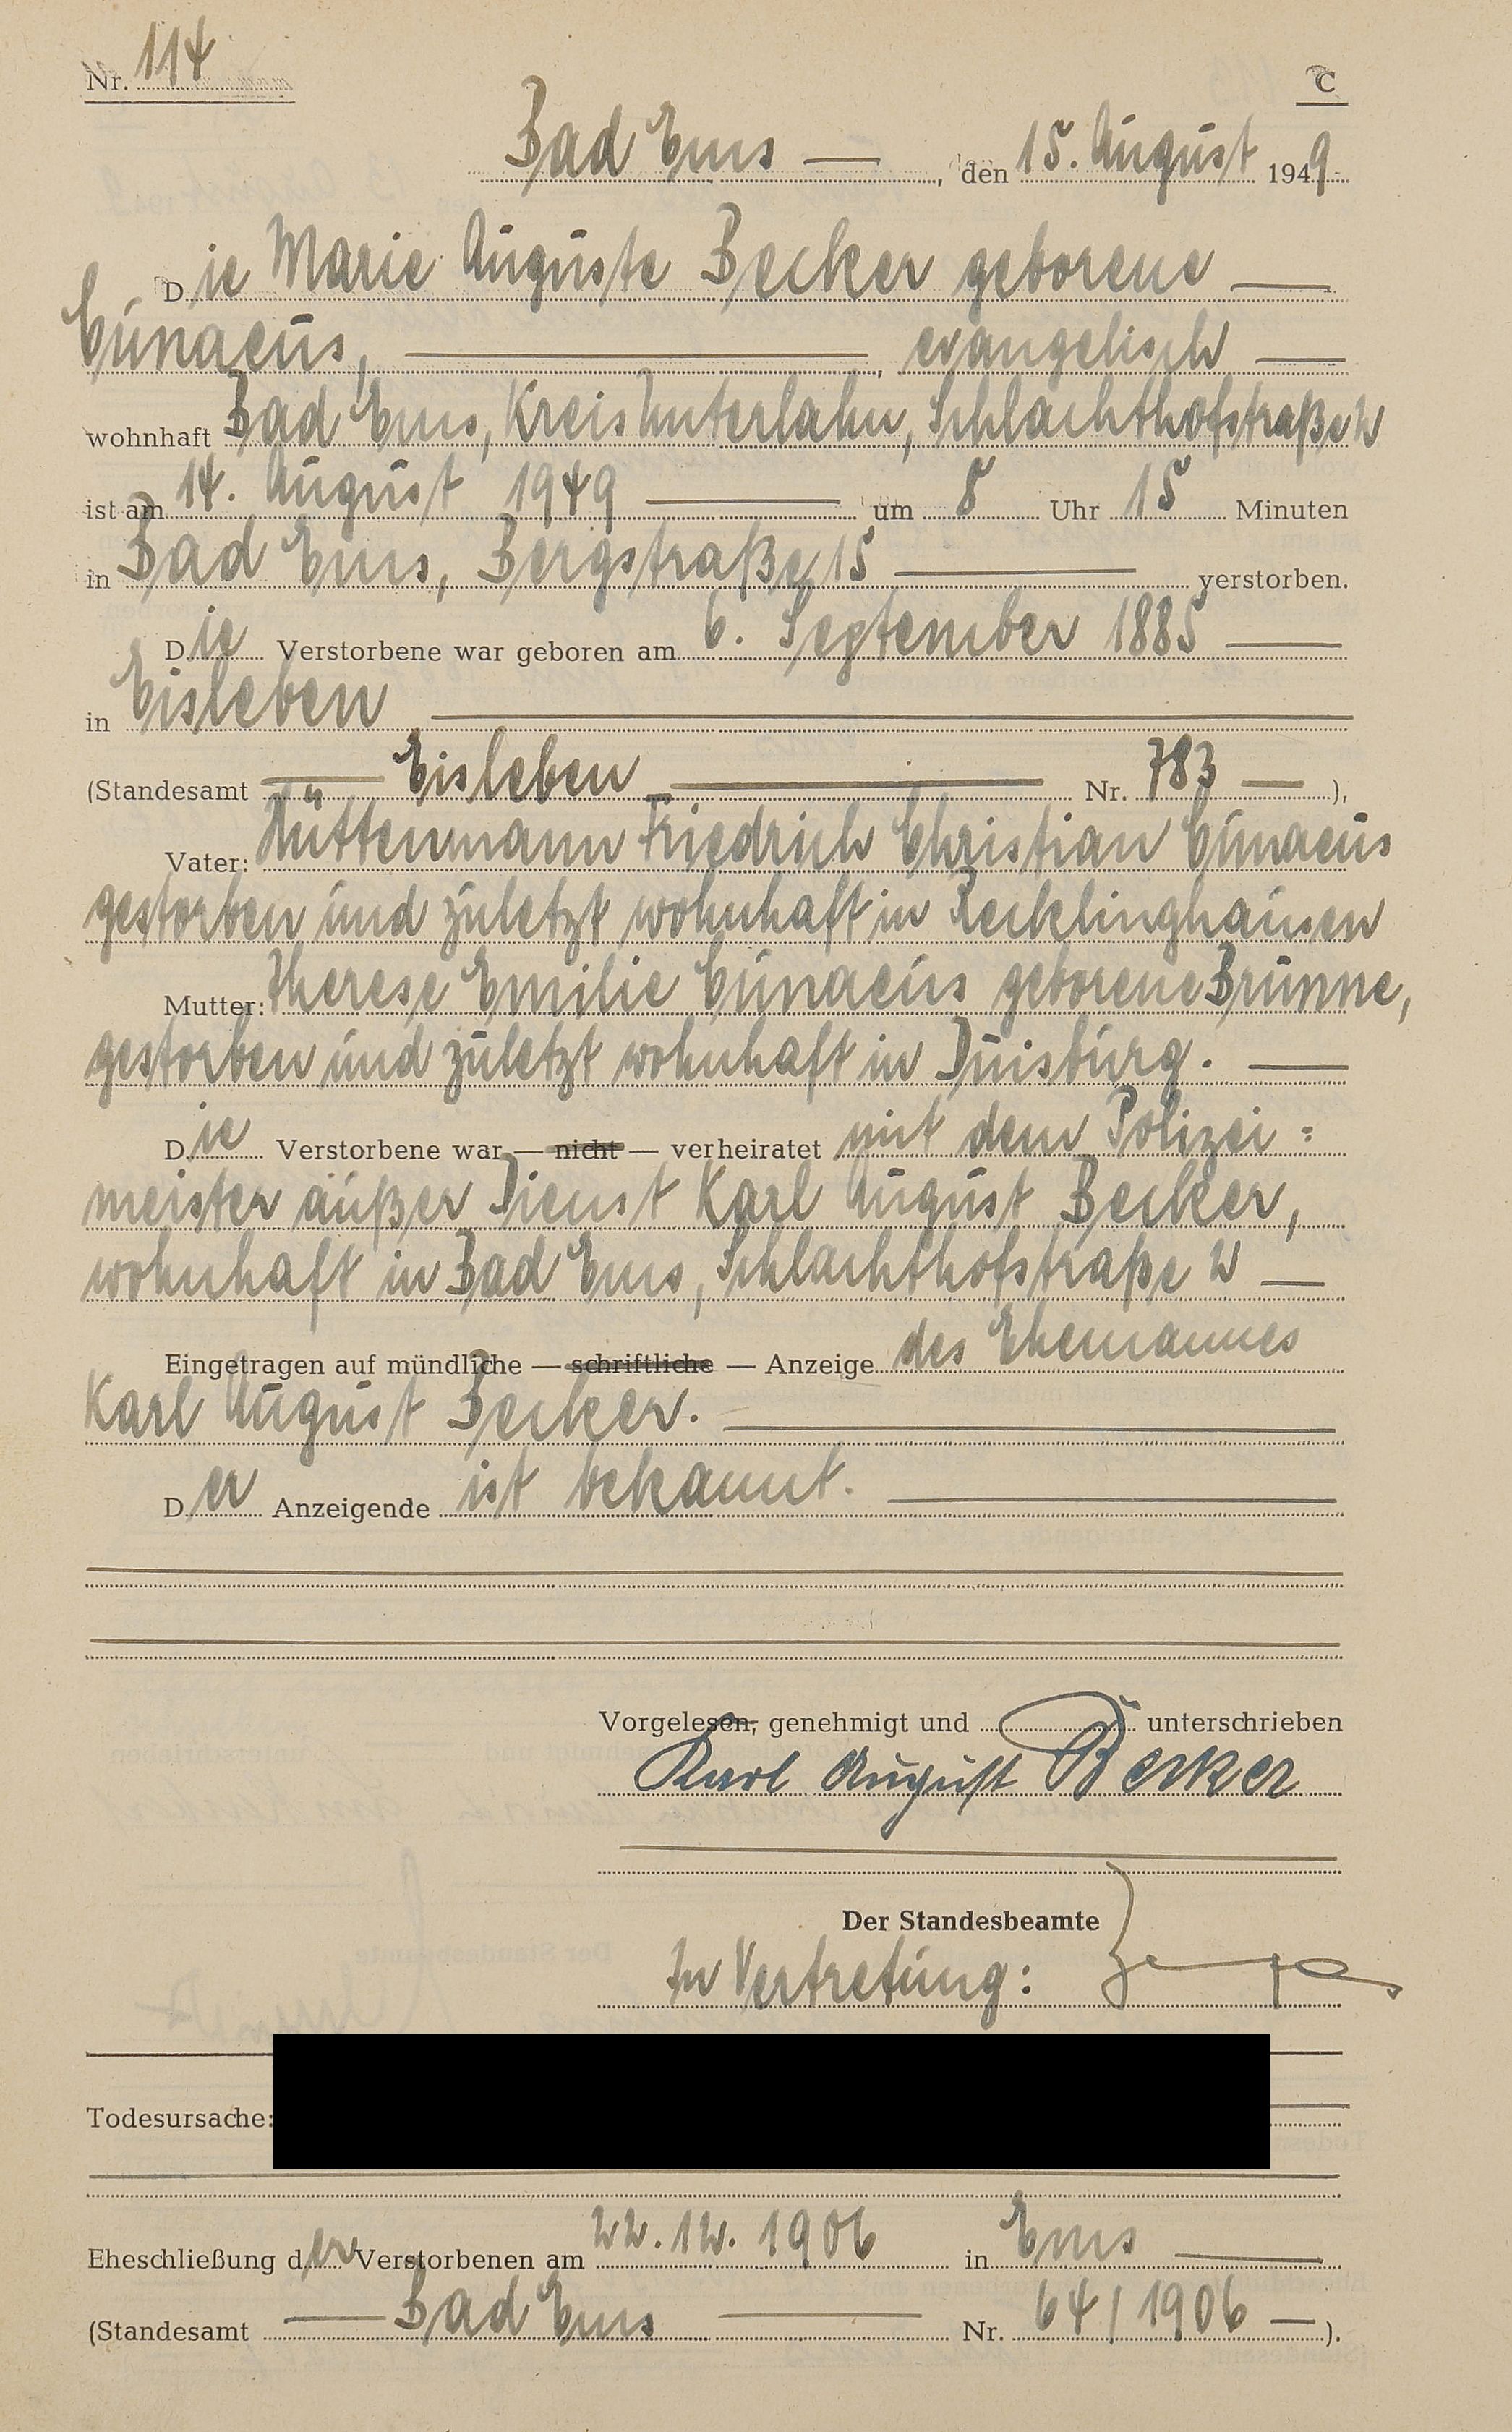 Nr. 114
C
Bad Ems — , den 15. August 1949
Die Marie Auguste Becker geborene —
Cunaeus, — , evangelisch —
wohnhaft Bad Ems, Kreis Unterlahn, Schlachthofstraße 2
ist am 14. August 1949 — um 8 Uhr 15 Minuten
in Bad Ems, Bergstraße 15 — verstorben.
Die Verstorbene war geboren am 6. September 1885 —
in Eisleben —
(Standesamt — Eisleben — Nr. 783 — ),
Vater: Hüttenmann Friedrich Christian Cunaeus
gestorben und zuletzt wohnhaft in Recklinghausen
Mutter: Therese Emilie Cunaeus geborene Brünne,
gestorben und zuletzt wohnhaft in Duisburg. —
Die Verstorbene war — nicht — verheiratet mit dem Polizei=
meister außer Dienst Karl August Becker,
wohnhaft in Bad Ems, Schlachthofstraße 2 —
Eingetragen auf mündliche — schriftliche — Anzeige des Ehemannes
Karl August Becker. —
Der Anzeigende ist bekannt. —
Vorgelesen, genehmigt und unterschrieben
Karl August Becker
Der Standesbeamte
In Vertretung:
Todesursache:
Eheschließung der Verstorbenen am 22.12.1906 in Ems —
(Standesamt — Bad Ems — Nr. 64/1906 — ).